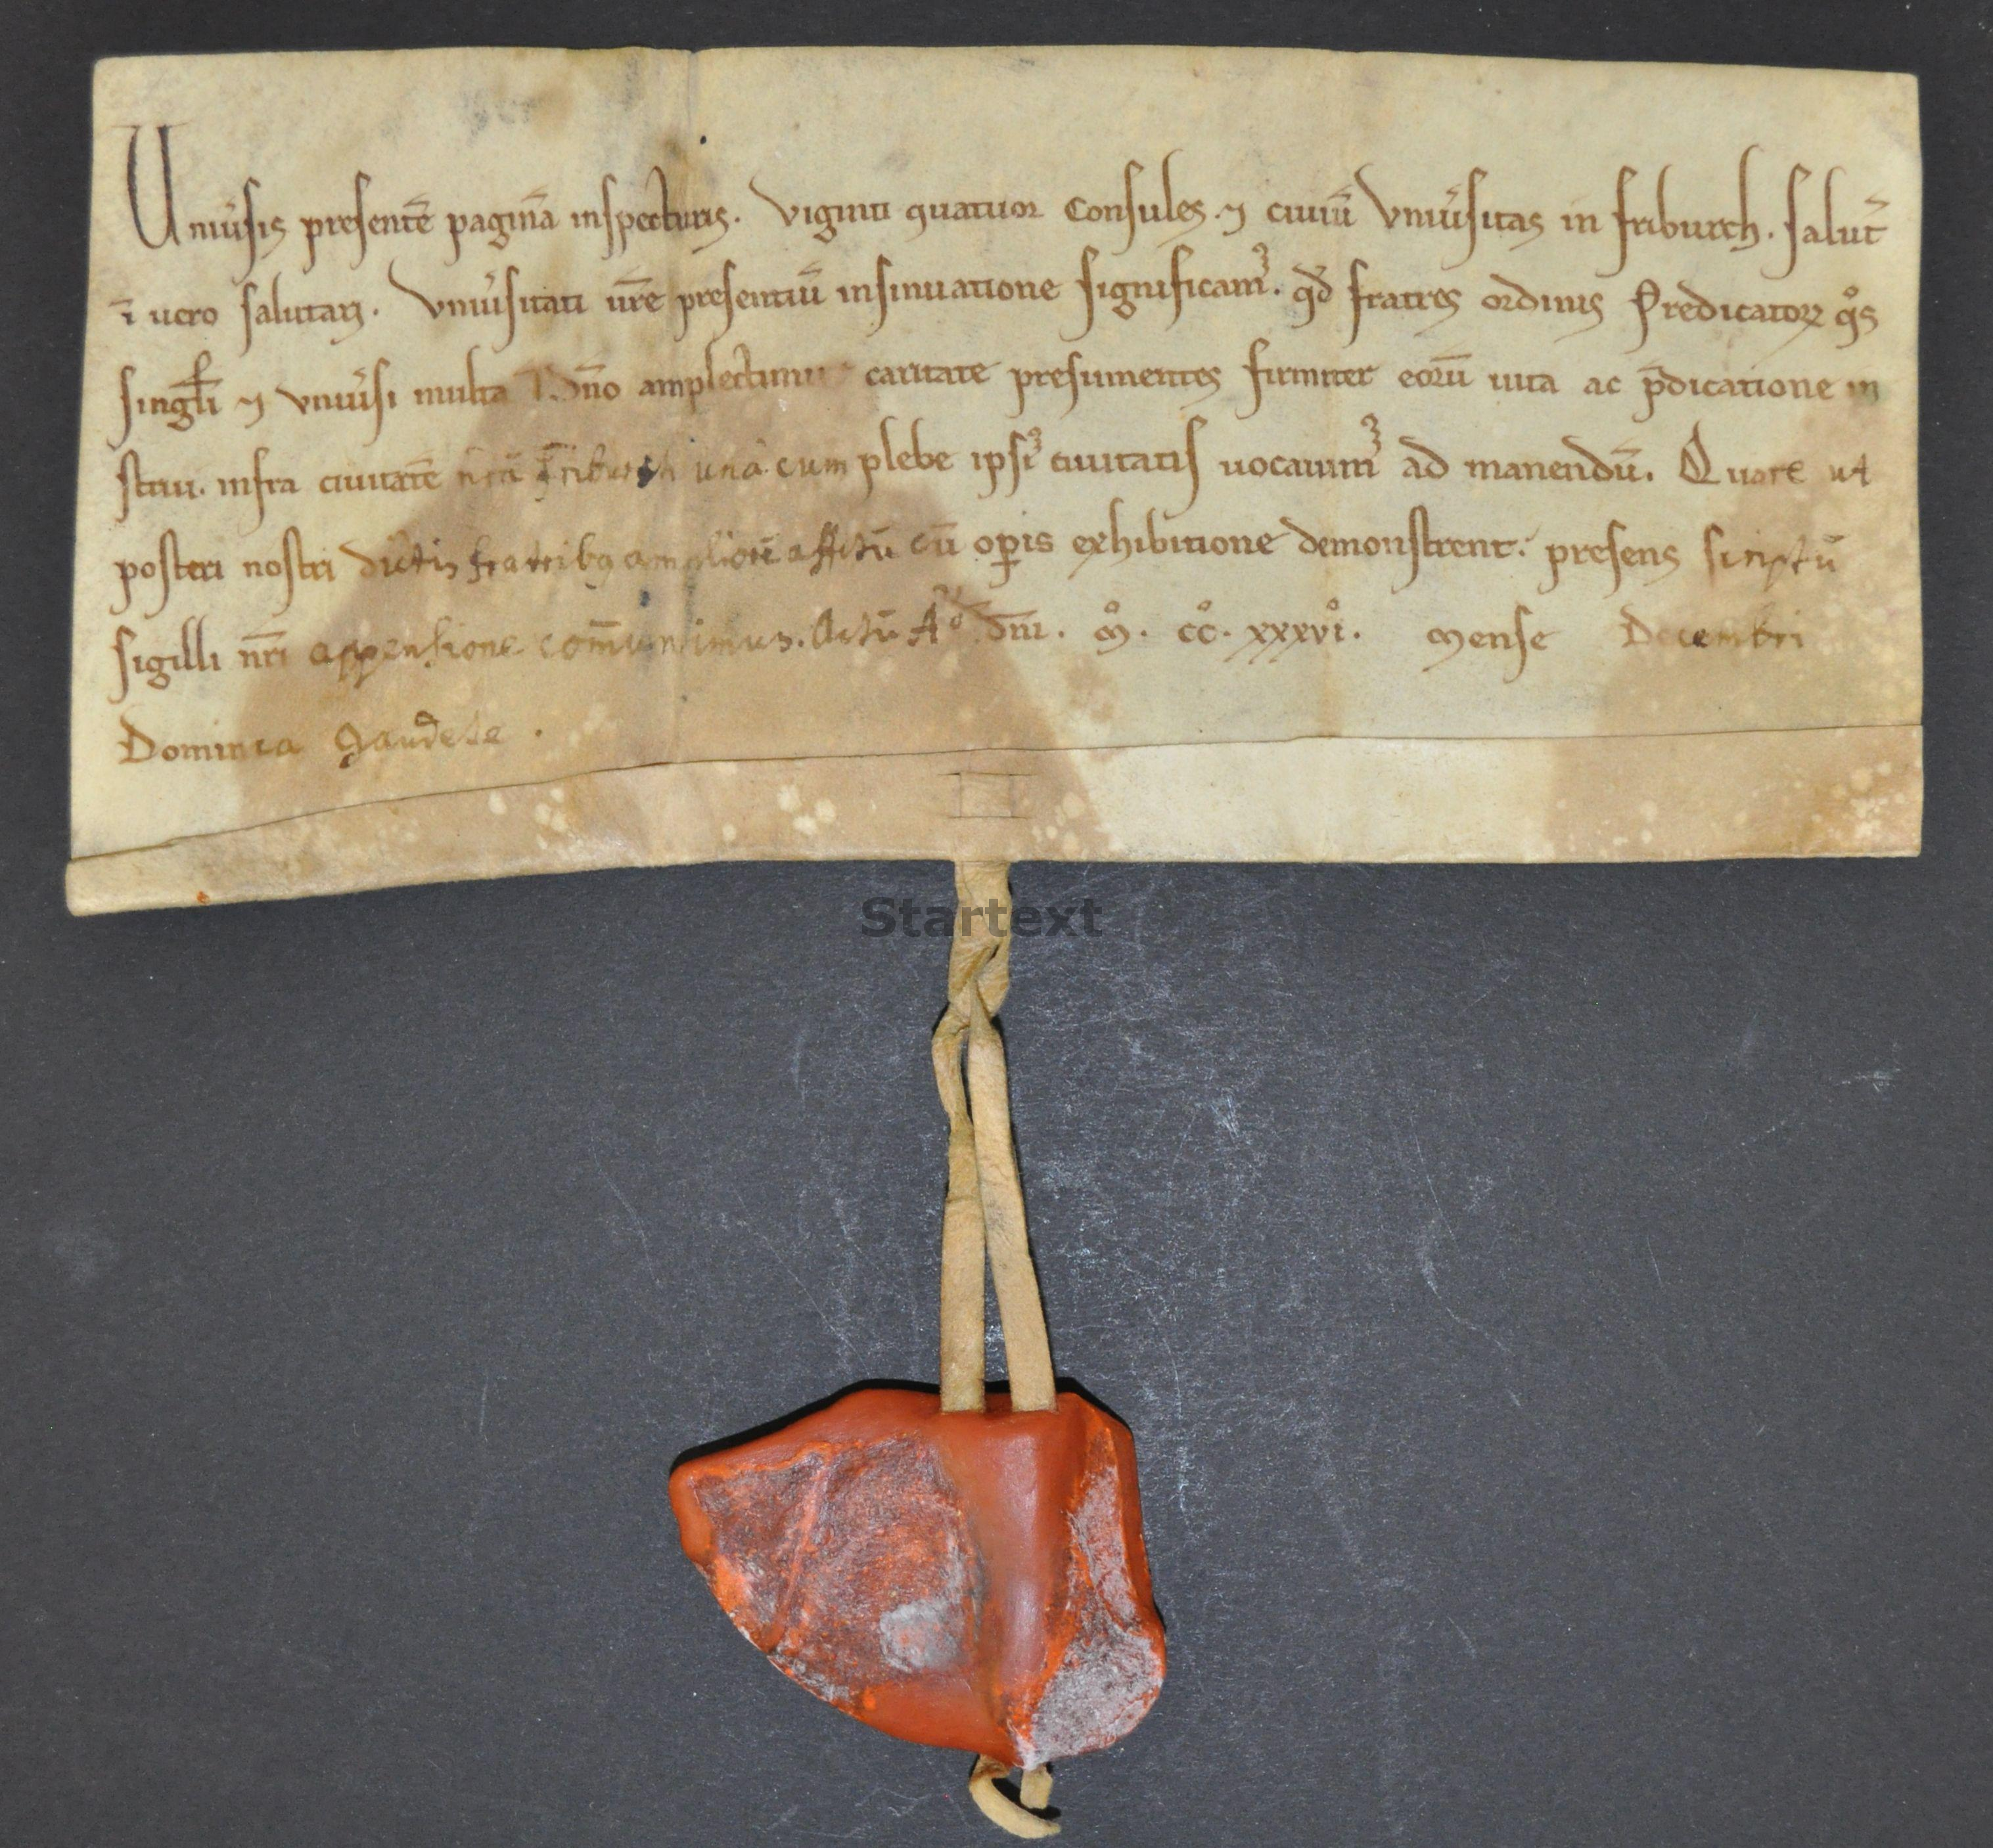 Uniu̾sis presentē paginā inspecturis. Viginti quatuor Consules ⁊ ciuiū Vniu̾sitas in friburch. Salut̄
ī uero salutari. Vniu̾sitati ur̄e presentiū insinuatione significamꝰ. qd̄ fratres ordinis Predicatoꝝ qͦs
singl̄i ⁊ vniu̾si multa amplectimur caritate presumentes firmiter eorū uita ac p̄dicatione in
strui. infra ciuitatē nr̄ā friburch una cum plebe ipsiꝰ ciuitatis uocauimꝰ ad manendū. Quare ut
posteri nostri dictis fratribꝫ ampliorē affc̄tū cū oꝑis exhibitione demonstrent. presens scriptū
sigilli nr̄i appensione com̄unimus. Actū Aͦ. dn̄i. mͦ. ccͦ. xxxviͦ. mense Decembri
Dominica Gaudete.
Startext